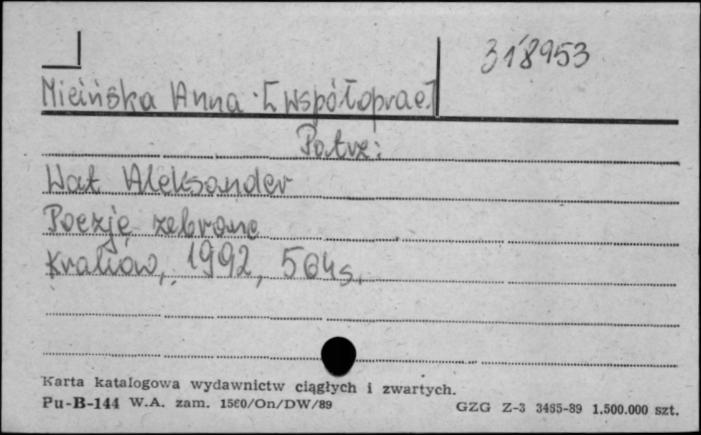 318953
Micińska Anna [współoprac.]
Patrz:
Wat Aleksander
Poezje zebrane
Kraków, 1992, 564 s.
Karta katalogowa wydawnictw ciągłych i zwartych.
Pu-B-144 W.A. zam. 1560/On/DW/89 GZG Z-3 3485-89 1.500.000 szt.